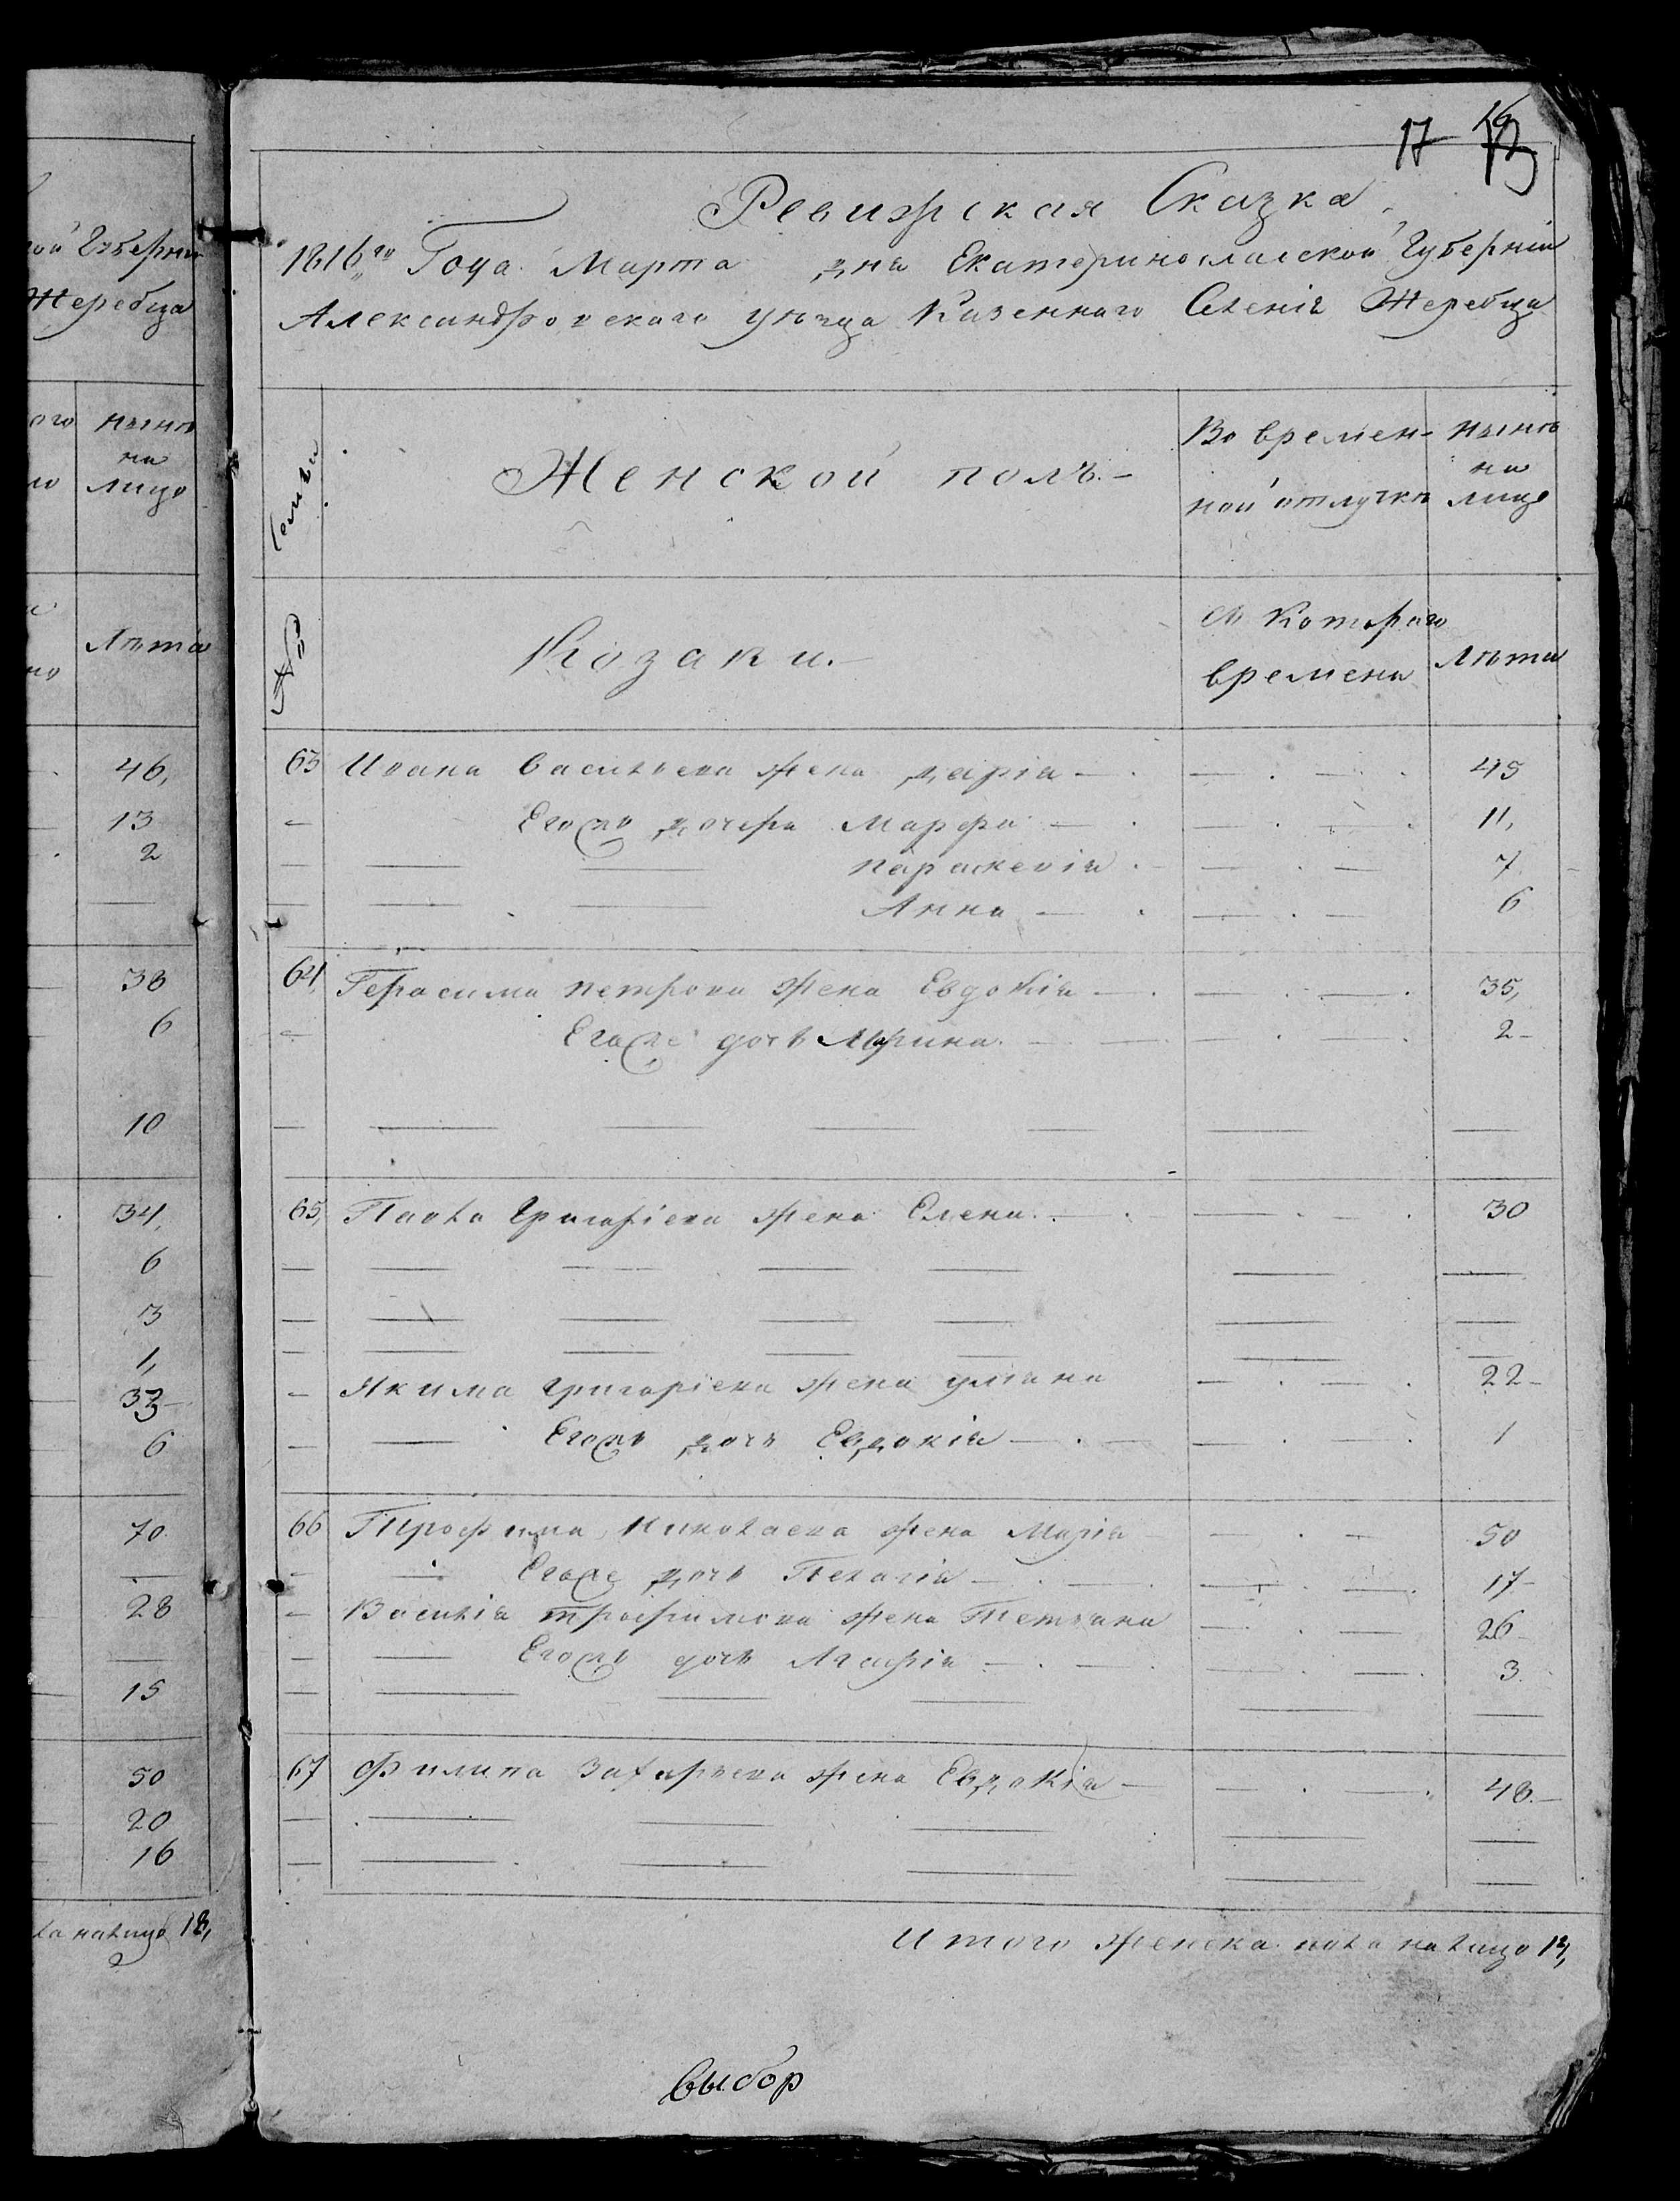 ой Губерніи
Жеребца
ого нынѣ
на
лицо
Лѣта
46,
13
2
38
6
10
34,
6
3
1,
33
6
70
28
15
50
20
16
ла налицо 18,
17
Ревижская Сказка
1816го Года Марта дня Екатеринославской Губерніи
Александровскаго уѣзда Казеннаго Селенія Жеребца
Семьи
Женской полъ.
Во времен- нынѣ
на
ной отлучкѣ лице
№
Козаки.
Съ Котораго
времени Лѣта
63 Ивана Васильева жена дарія 45
Егожъ дочери Марфа 11,
параскевія 7
Анна 6
64, Герасима петрова жена Евдокія 35,
Егоже дочь Марина 2
65, Павла Григоріева жена Елена 30
Якима григоріева жена уліана 22
Егожъ дочь Евдокія 1
66 Трофима Николаева жена Марія 50
Егоже дочь Пелагія 17
Василія трофимова жена Татіана 26
Егожъ дочь Агафія 3
67 Филипа Захарьева жена Евдокія 48.
Итого женска пола налицо 14,
выбор